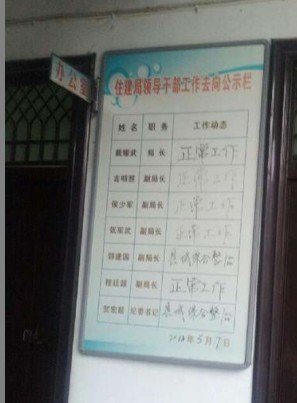 办公室
住建局领导干部工作去向公示栏
姓名 职务 工作动态
戴耀武 局长 正常工作
言明胜 副局长 正常工作
侯少军 副局长 正常工作
张军武 副局长 正常工作
郭建国 副局长 县城综合整治
程廷超 副局长 正常工作
贺宏超 纪委书记 县城综合整治
5月7日